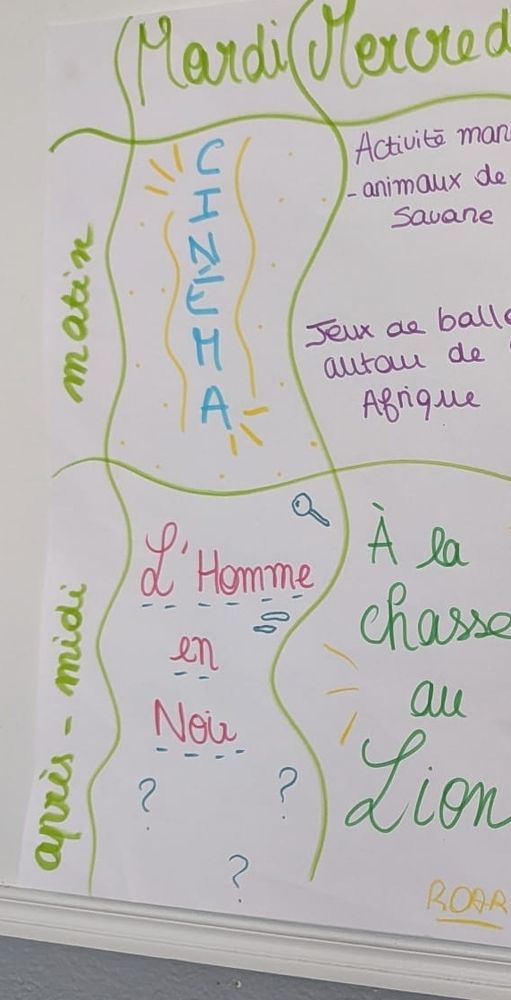 Mardi Mercred
matin
C
I
N
É
M
A
Activité man
- animaux de
Savane
Jeux de balle
autour de
Afrique
après - midi
L'Homme
en
Noir
? ?
?
À la
chasse
au
Lion
ROAR